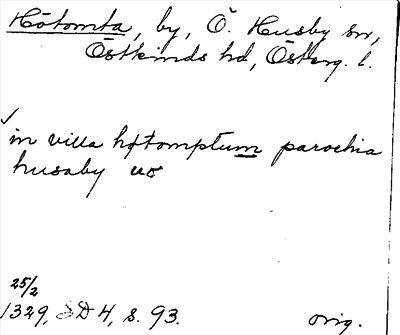 Hötomta, by, Ö. Husby sn,
Östkinds hd, Österg. l.
in villa høtomptum parochia
husaby uo
25/2
1329, SD 4, s. 93. orig.